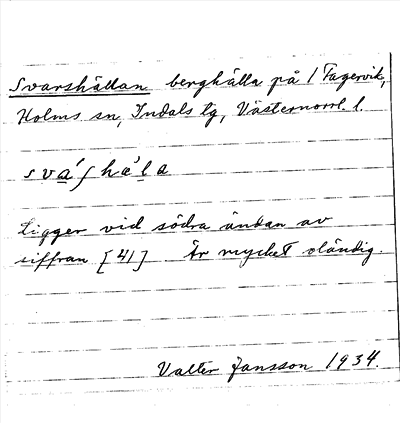 Svarshällan berghälla på / Fagervik,
Holms sn, Indals tg, Västernorrl. l.
svá∫hæ'la
Ligger vid södra ändan av
siffran [41] Är mycket oländig.
Valter Jansson 1934